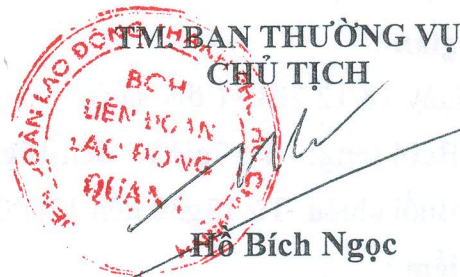 TM. BAN THƯỜNG VỤ
CHỦ TỊCH
BCH
LIÊN ĐOÀN
LAO ĐỘNG
QUẬN
Hồ Bích Ngọc